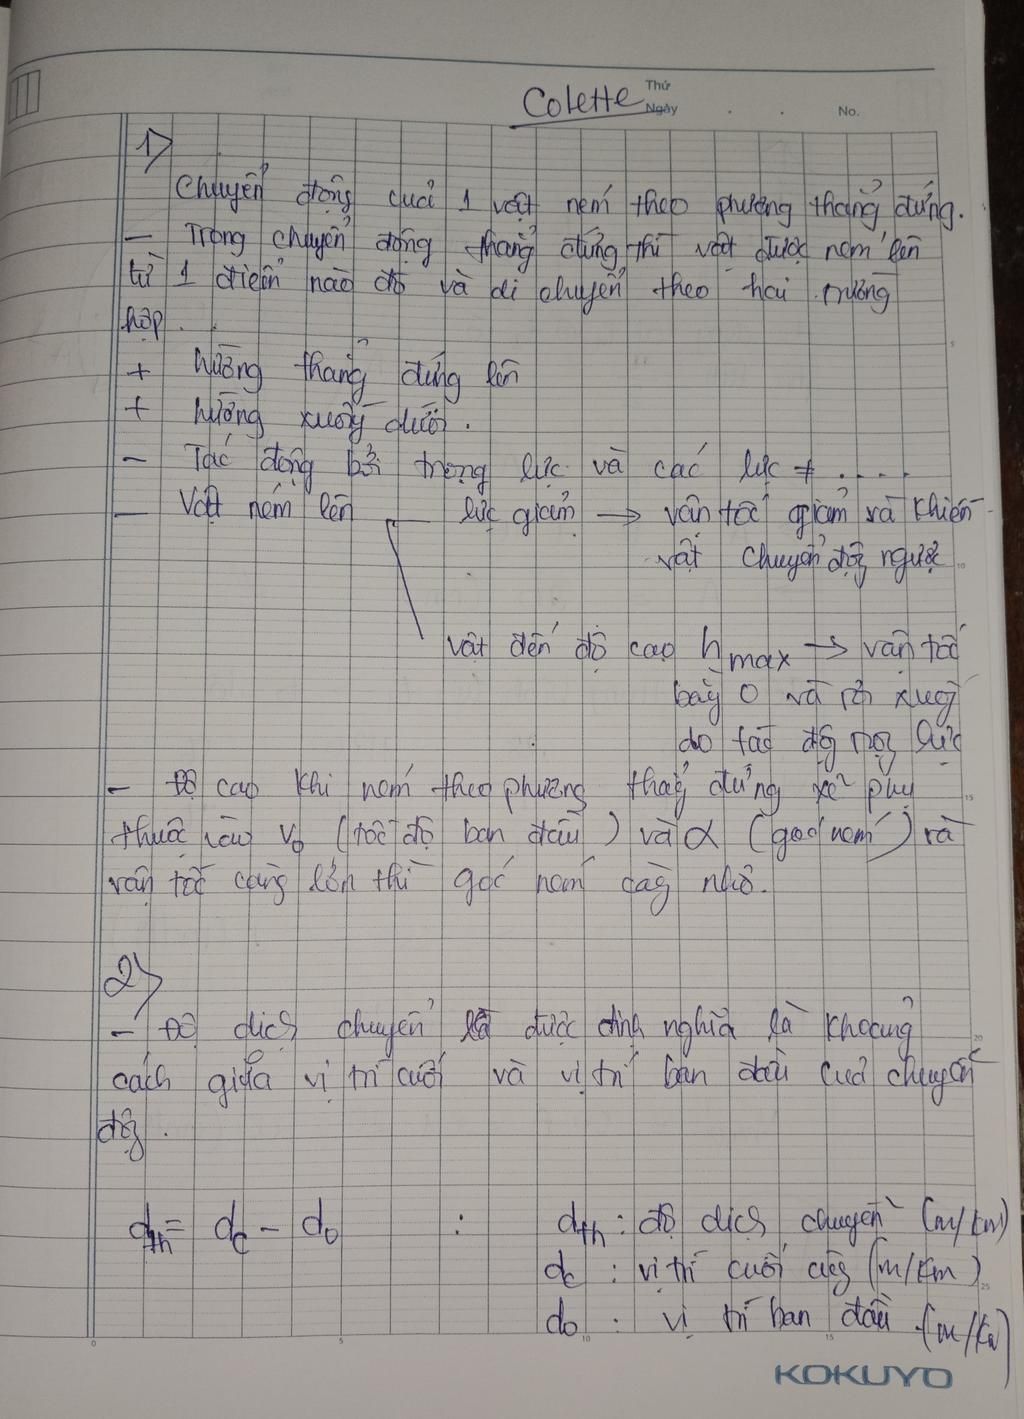 Colette
Thứ
Ngày . . No.
1)
Chuyển động của 1 vật ném theo phương thẳng đứng.
- Trong chuyển động thẳng đứng thì vật được ném lên
từ 1 điểm nào đó và di chuyển theo hai trường
hợp.
+ hướng thẳng đứng lên
+ hướng xuống dưới.
- Tác động bởi trọng lực và các lực ≠ ....
- Vật ném lên lực giảm → vận tốc giảm và khiến
vật chuyển động ngược
vật đến độ cao h max → vận tốc
bằng 0 và rơi xuống
do tác động trọng lực
- Độ cao khi ném theo phương thẳng đứng sẽ phụ
thuộc vào v₀ (tốc độ ban đầu) và α (góc ném) và
vận tốc càng lớn thì góc ném càng nhỏ.
2)
- Độ dịch chuyển được định nghĩa là khoảng
cách giữa vị trí cuối và vị trí ban đầu của chuyển
động.
dth = dc - d₀ : dth : độ dịch chuyển (m/km)
dc : vị trí cuối cùng (m/km)
d₀ : vị trí ban đầu (m/km)
KOKUYO